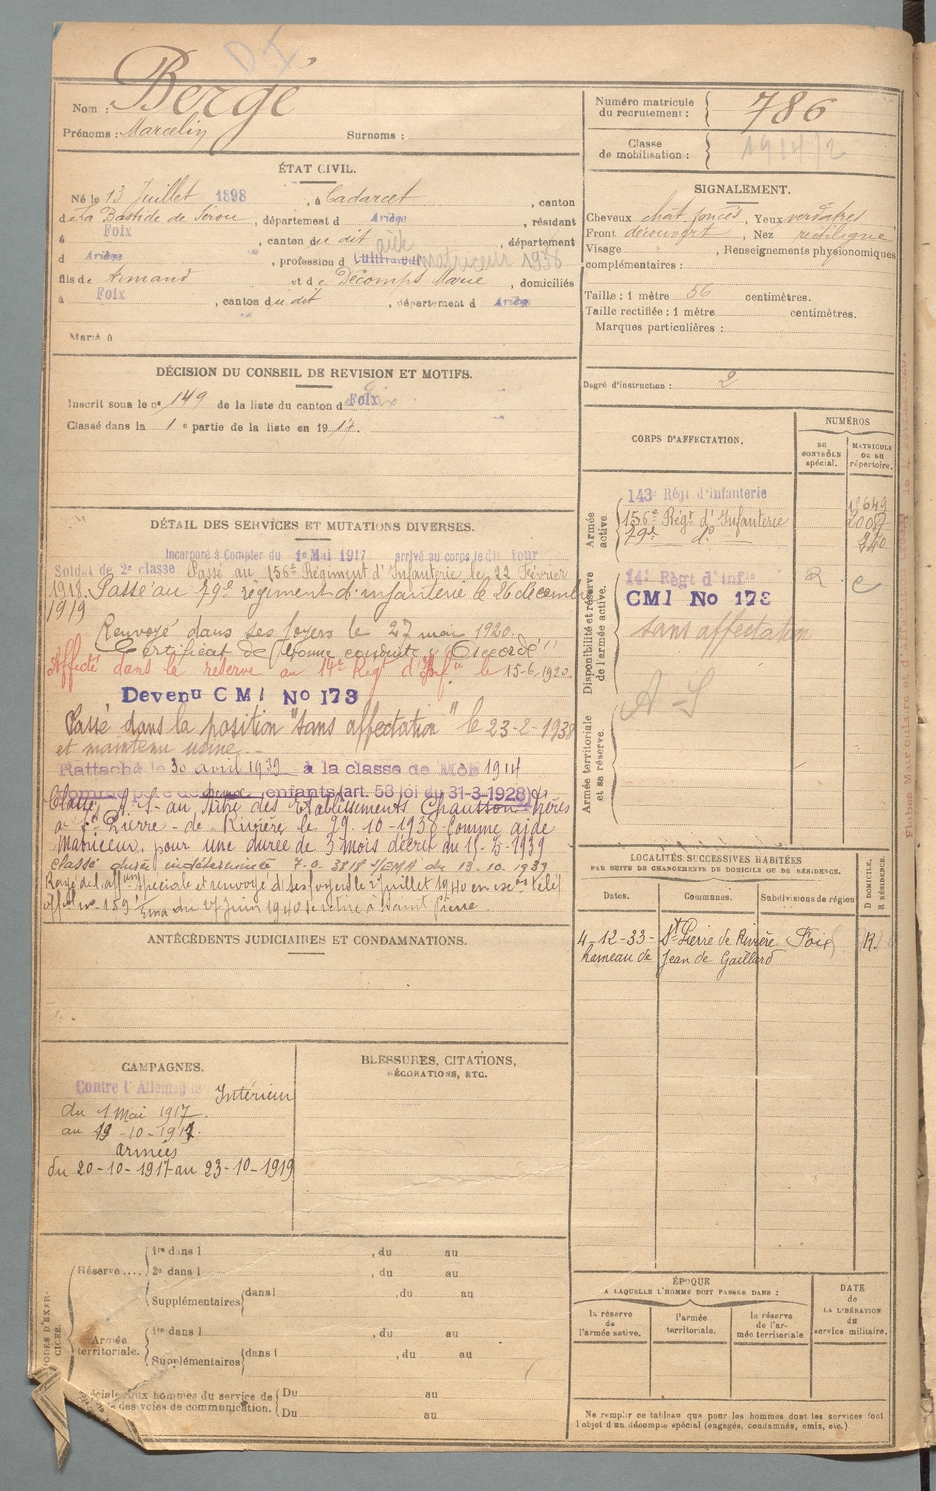 Nom : Bergé
Prénoms : Marcelin Surnoms :
ÉTAT CIVIL.
Né le 13 Juillet 1898, à Cadarcet, canton
de La Bastide de Sérou, département d Ariège, résidant
à Foix, canton du dit, département
d Ariège, profession d Cultivateur aide matriceur 1938
fils de Armand et de Décomps Marie, domiciliés
à Foix, canton du dit, département d Ariège
Marié à
DÉCISION DU CONSEIL DE REVISION ET MOTIFS.
Inscrit sous le no 149 de la liste du canton de Foix
Classé dans la 1e partie de la liste en 1917.
DÉTAIL DES SERVICES ET MUTATIONS DIVERSES.
Incorporé à Compter du 1e Mai 1917 arrivé au corps le dit jour
Soldat de 2e classe Passé au 156e Régiment d'Infanterie le 22 Février
1918. Passé au 79e régiment d'infanterie le 26 décembre
1919
Renvoyé dans ses foyers le 27 mai 1920.
Certificat de Bonne conduite "Accordé"
Affecté dans la réserve au 14e Rég d'Infie le 15-6-1920.
Devenu CMI No 173
Passé dans la position "sans affectation" le 23-2-1938
et maintenu usine
Rattaché le 30 avril 1939 à la classe de Mob 1914
comme père de deux enfants (art. 58 loi du 31-3-1928)
Classé A.S. au titre des Etablissements Chausson frères
à St Pierre-de-Rivière le 29.10-1938 comme aide
Matriceur pour une durée de 3 mois décret du 15-5-1939
classé durée indéterminée 7.0. 3818 /EMA du 13.10.1939
Rayé de l'affon spéciale et renvoyé ds ses foyers le juillet 1940 en
no 159 /Ema du 27 juin 1940 se retire à Saint Pierre
ANTÉCÉDENTS JUDICIAIRES ET CONDAMNATIONS.
CAMPAGNES.
Contre l'Allemagne Intérieur
du 1 Mai 1917
au 19-10-1917.
armées
du 20-10-1917 au 23-10-1919
BLESSURES, CITATIONS,
DÉCORATIONS, ETC.
Réserve.... 1re dans l , du au
2e dans l , du au
Supplémentaires dans l , du au
Armée territoriale. 1re dans l , du au
Supplémentaires dans l , du au
aux hommes du service de Du au
des voies de communication. Du au
Numéro matricule
du recrutement : 786
Classe
de mobilisation : 1914/2
SIGNALEMENT.
Cheveux chât. foncés, Yeux verdâtres
Front découvert, Nez rectiligne
Visage , Renseignements physionomiques
complémentaires :
Taille : 1 mètre 56 centimètres.
Taille rectifiée : 1 mètre centimètres.
Marques particulières :
Degré d'instruction : 2
CORPS D'AFFECTATION.
NUMÉROS
AU CONTRÔLE spécial.
MATRICULE OU AU répertoire.
Armée active.
143e Régt d'Infanterie
156e Régt d'Infanterie
79e do
Disponibilité et réserve de l'armée active.
14e Régt d'Infie
CMI No 173
sans affectation
A S
Armée territoriale et sa réserve.
LOCALITÉS SUCCESSIVES HABITÉES
PAR SUITE DE CHANGEMENTS DE DOMICILE OU DE RÉSIDENCE.
Dates. Communes. Subdivisions de région D DOMICILE. R RÉSIDENCE.
4-12-33- St Pierre de Rivière Foix R.
hameau de Jean de Gaillard
ÉPOQUE
A LAQUELLE L'HOMME DOIT PASSER DANS :
la réserve de l'armée active.
l'armée territoriale.
la réserve de l'armée territoriale
DATE de LA LIBÉRATION du service militaire.
Ne remplir ce tableau que pour les hommes dont les services font
l'objet d'un décompte spécial (engagés, condamnés, omis, etc.)